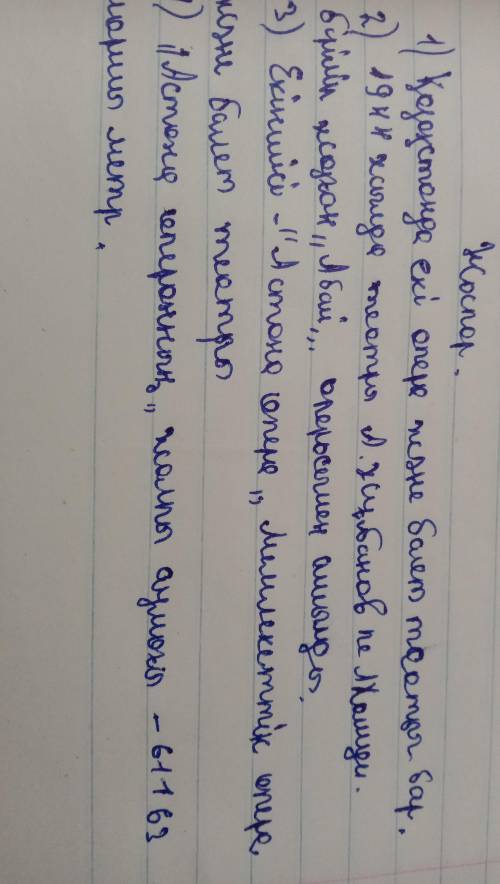 Жоспар.
1) Қазақстанда екі опера және балет театры бар.
2) 1944 жылда театры А. Жұбанов пе Л Хамиди.
бірігіп жазған „Абай„ операсымен ашылды.
3) Екіншісі - "Астана опера„ Мемлекеттік опера
және балет театры
"Астана операның„ жалпы аумағы - 61163
шаршы метр.